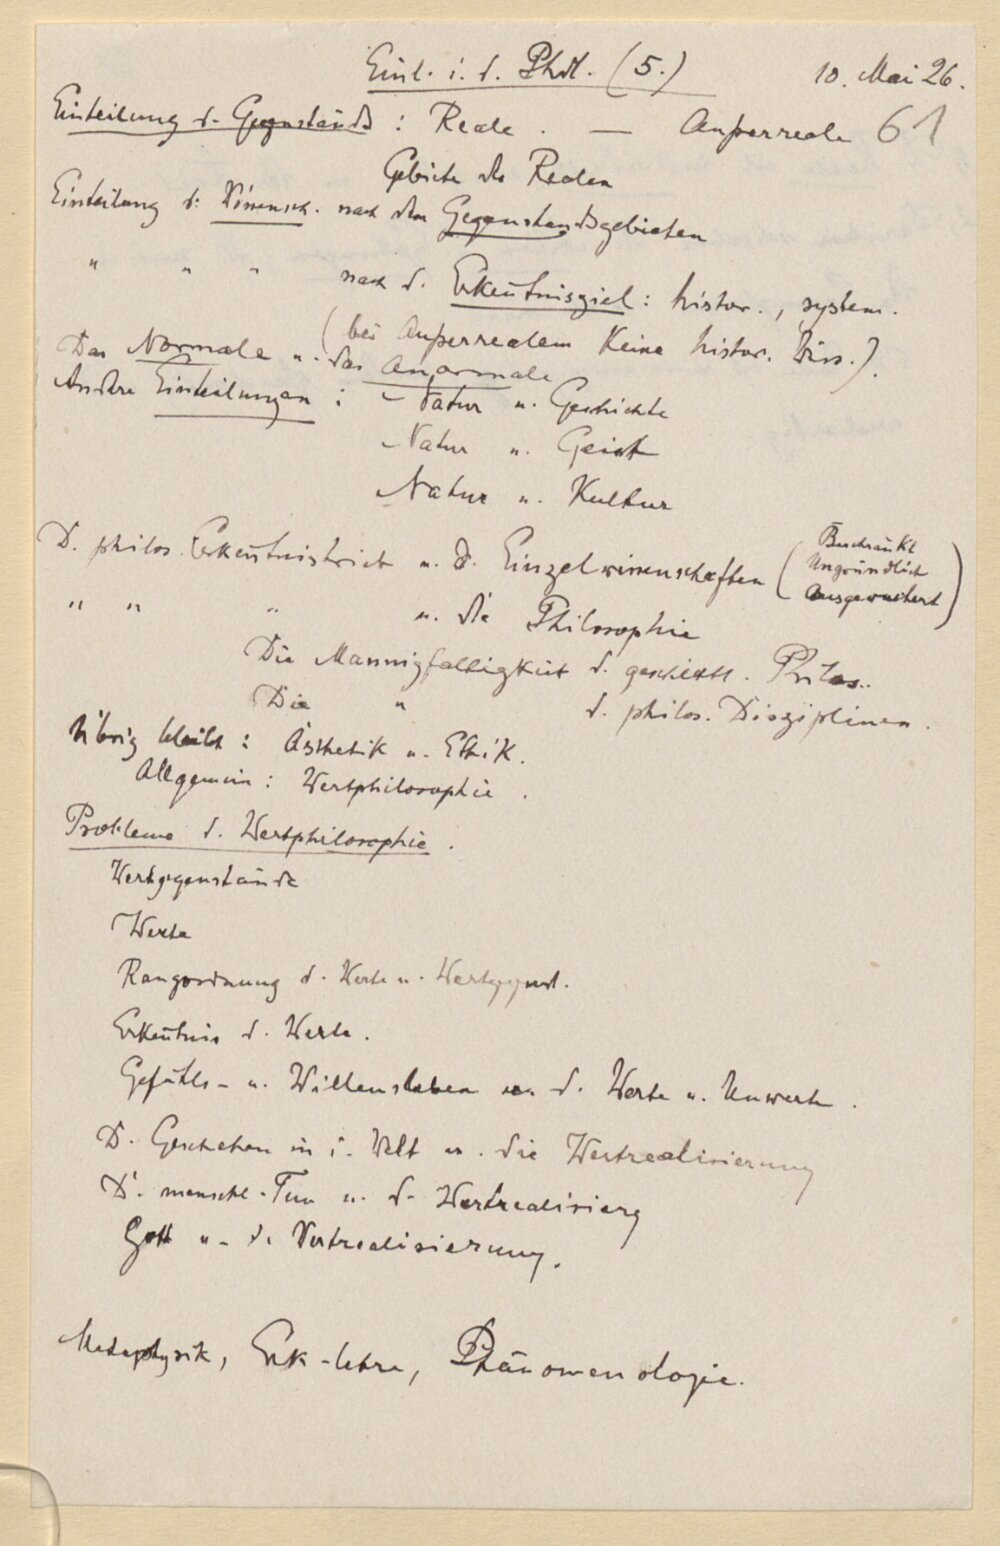 Einl. i. d. Phil. (5.) 10. Mai 26.
Einteilung d. Gegenstände : Reale . — Außerreale 61
Gebiete des Realen
Einteilung d. Wissensch. nach den Gegenstandsgebieten
" " " nach d. Erkenntnisziel : histor., system.
(bei Außerrealem keine histor. Wiss.).
Das Normale u. das Anormale
Andere Einteilungen : Natur u. Geschichte
Natur u. Geist
Natur u. Kultur
D. philos. Erkenntnistrieb u. d. Einzelwissenschaften (Beschränkt
Ungründlich
Ausgeweitert)
" " " u. die Philosophie
Die Mannigfaltigkeit d. geschichtl. Philos.
Die " d. philos. Disziplinen.
Übrig bleibt : Ästhetik u. Ethik.
Allgemein : Wertphilosophie .
Probleme d. Wertphilosophie .
Wertgegenstände
Werte
Rangordnung d. Werte u. Wertggnst.
Erkenntnis d. Werte .
Gefühls- u. Willensleben u. d. Werte u. Unwerte .
D. Geschehen in d. Welt u. die Wertrealisierung
D. menschl. Tun u. d. Wertrealisierg
Gott u. d. Wertrealisierung.
Metaphysik, Erk-lehre, Phänomenologie.